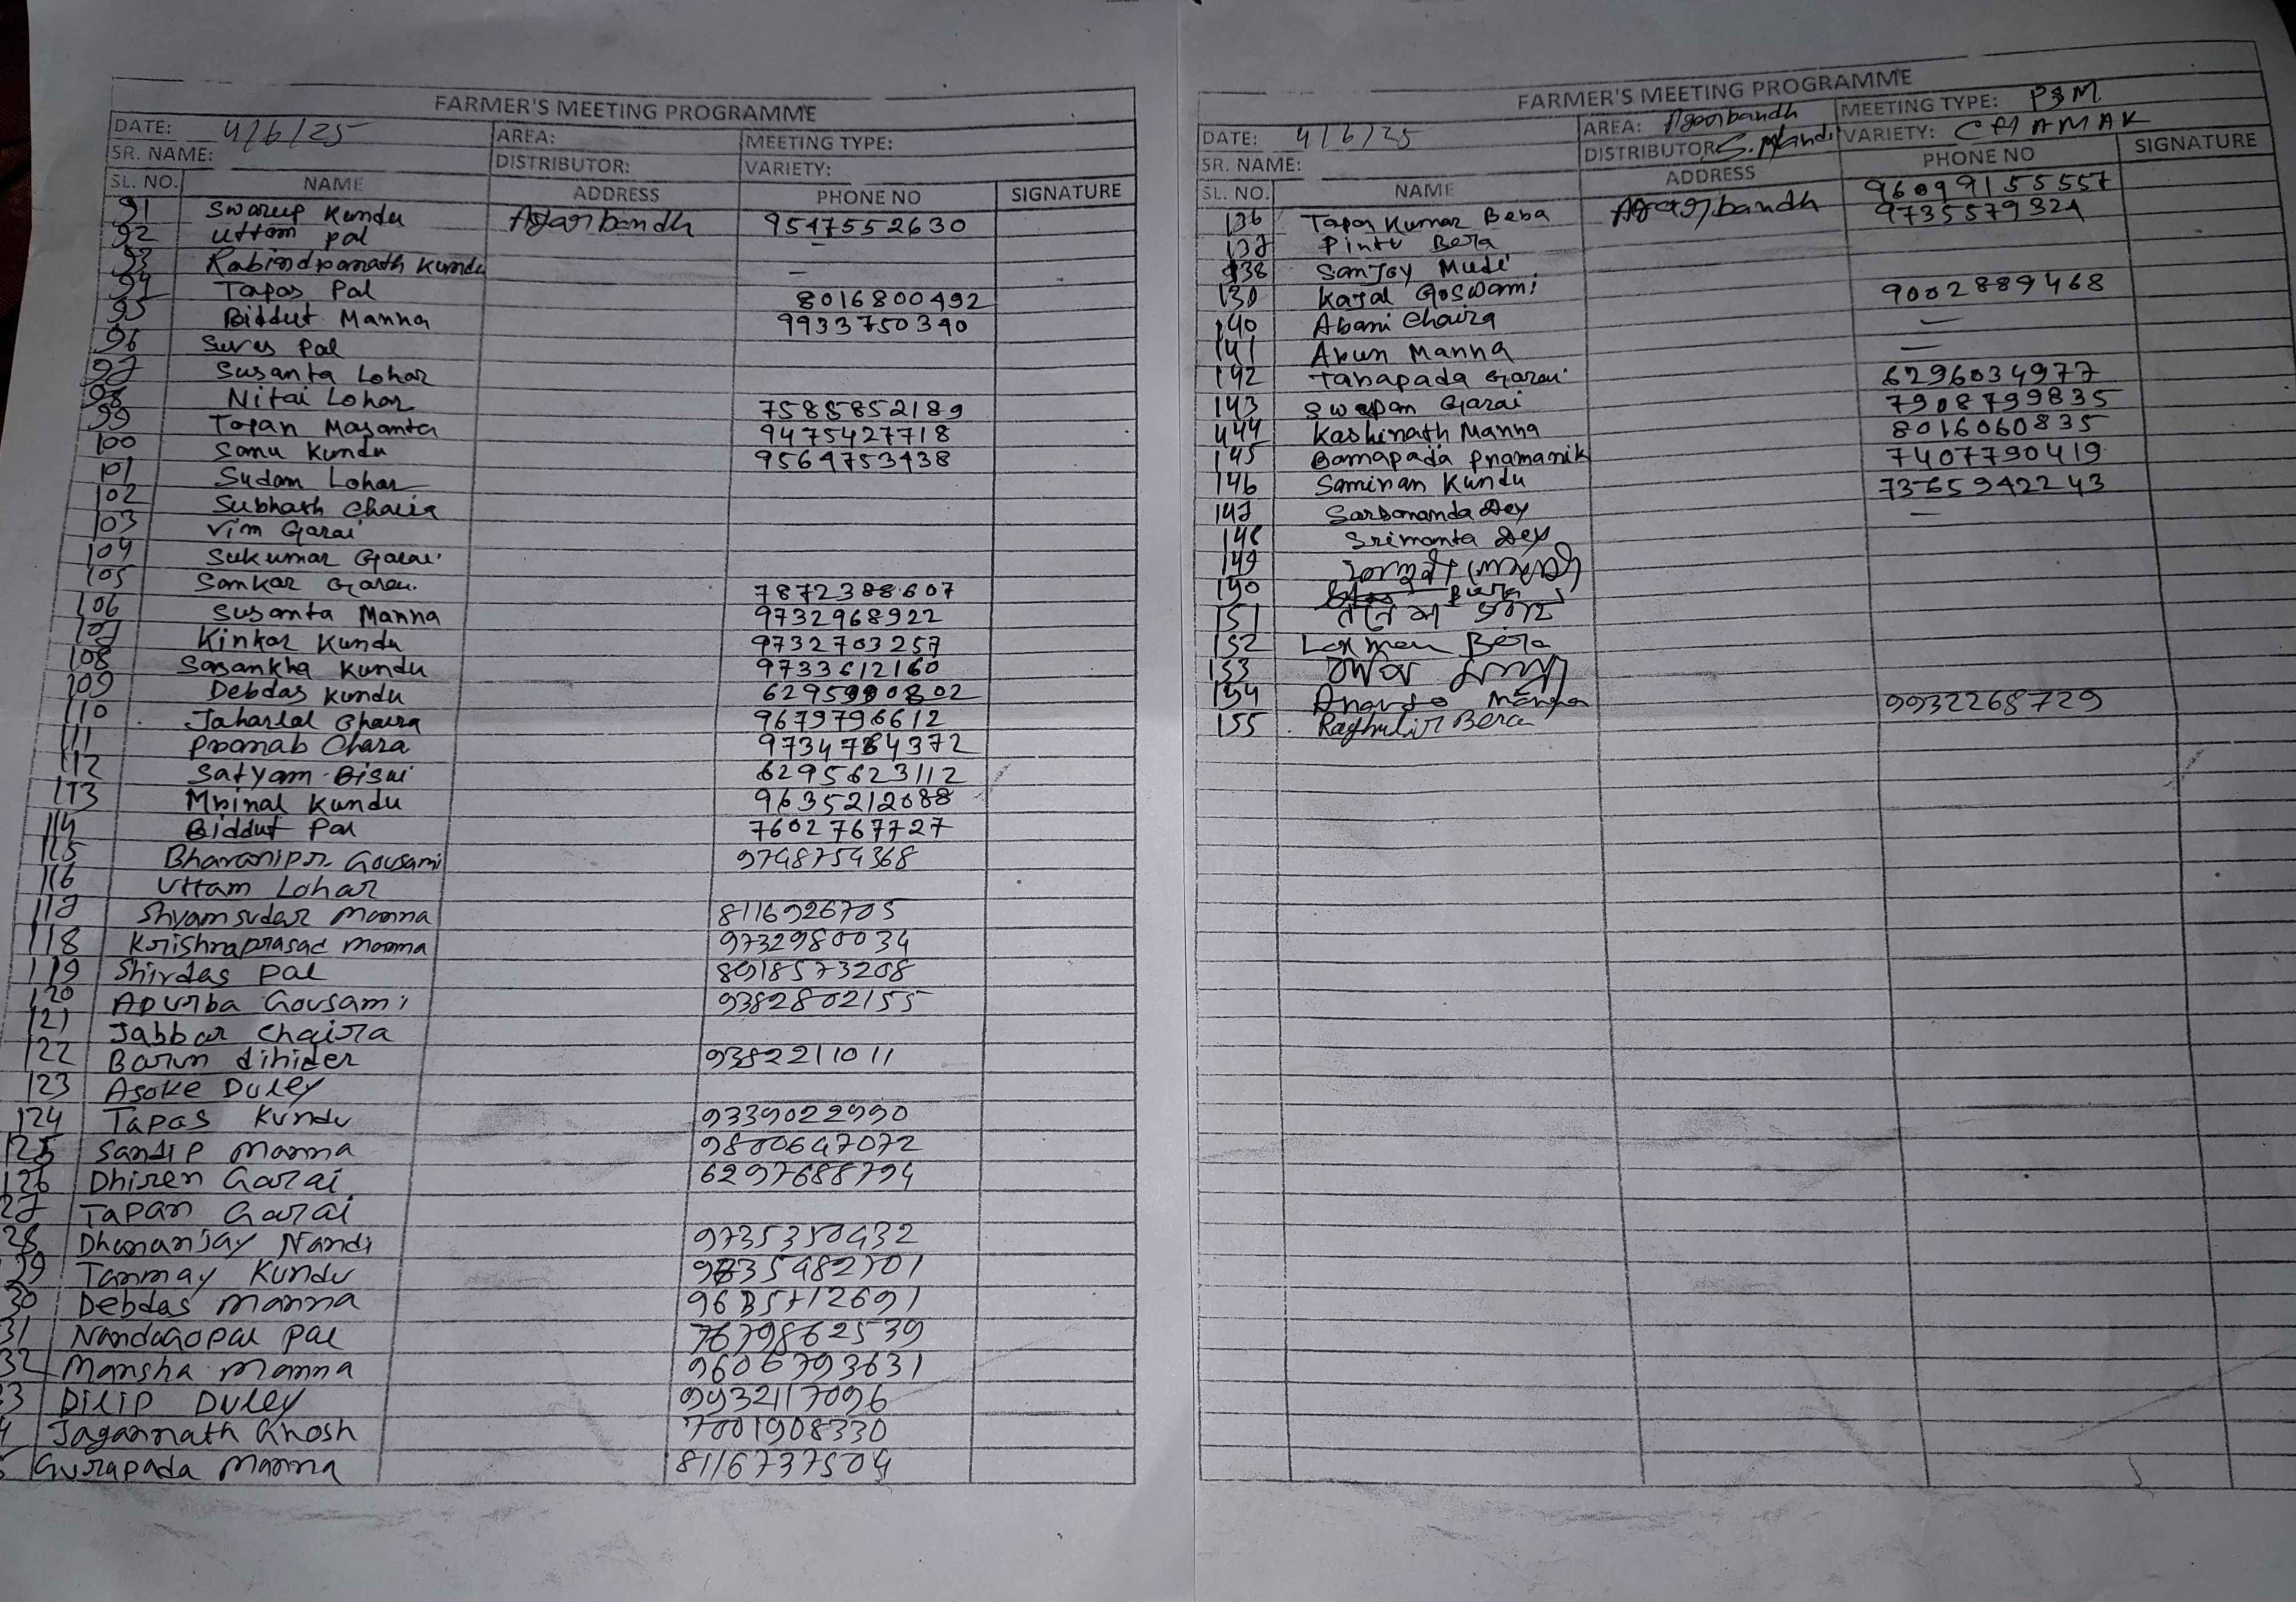 FARMER'S MEETING PROGRAMME
DATE: 4/6/25 AREA: MEETING TYPE:
SR. NAME: DISTRIBUTOR: VARIETY:
SL. NO. NAME ADDRESS PHONE NO SIGNATURE
91 Swarup Kundu Agarbandh 9547552630
92 Uttam Pal —
93 Rabindranath Kundu —
94 Tapas Pal 8016800492
95 Biddut Manna 9933750390
96 Suras Pal
97 Susanta Lohar
98 Nitai Lohar 7585852189
99 Tapan Masanta 9475427718
100 Sonu Kundu 9564753438
101 Sudam Lohar
102 Subhash Chaira
103 Vim Garai
104 Sukumar Garai
105 Samkar Garai 7872388607
106 Susanta Manna 9732968922
107 Kinkar Kundu 9732703257
108 Sasankha Kundu 9733612160
109 Debdas Kundu
110 Jaharlal Chaira 9679796612
111 Pranab Chara 9734784372
112 Satyam Bisui 6295623112
113 Mrinal Kundu 9635212088
114 Biddut Pal 7602767727
115 Gousami 9748754368
116 Uttam Lohar
117 Shyamsudar Manna 8116926705
118 Krishnaprasad Manna 9732980034
119 Shivdas Pal 8918573208
120 Apurba Gousami 9382802155
121 Jabbar Chaira
122 Barun dihider 9382211011
123 Asoke Duley
124 Tapas Kundu 9339022990
125 Sandip Manna 9800647072
126 Dhiren Garai 6297688794
27 Tapan Garai
28 Dhananjay Nandi 9735350432
29 Tanmay Kundu
30 Debdas Manna
31 Nandagopal Pal 7679862539
32 Mansha Manna 9606793631
3 Dilip Duley 9932117096
4 Jagannath Ghosh 7001908330
5 Gurapada Manna 8116737504
FARMER'S MEETING PROGRAMME
DATE: 4/6/25 AREA: Agarbandh MEETING TYPE: PSM
SR. NAME: DISTRIBUTOR: S. Mandi VARIETY: CHAMAK
SL. NO. NAME ADDRESS PHONE NO SIGNATURE
136 Tapas Kumar Beba Agarbandh 96099155557
137 Pintu Bera 9735579321
138 Sanjoy Mudi
139 Kajal Goswami 9002889468
140 Abani Chaira —
141 Arun Manna —
142 Tarapada Garai 6296034977
143 Swapan Garai 7908799835
144 Kashinath Manna 8016060835
145 Bamapada Pramanik 7407790419
146 Samiran Kundu 7365942243
147 Sarbananda Dey —
148 Srimanta Dey
149
150 Bera
151
152 Laxman Bera
153
154 Ananta Manna 9932268729
155 Raghubir Bera